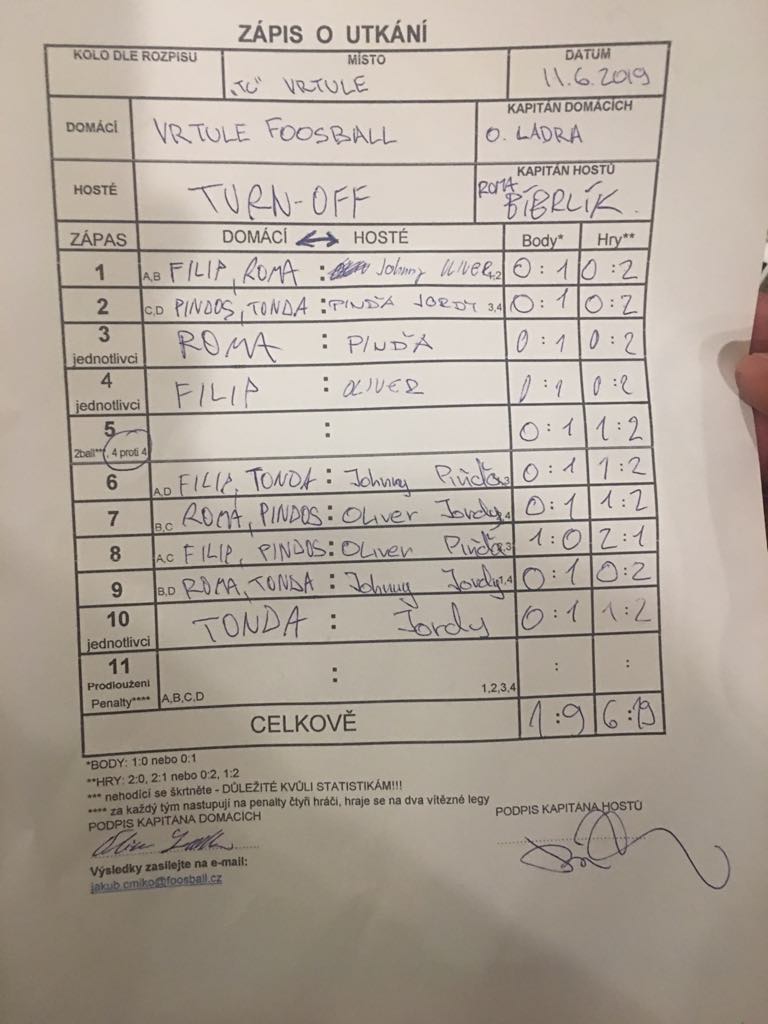 ZÁPIS O UTKÁNÍ
KOLO DLE ROZPISU MÍSTO DATUM
„TC" VRTULE 11.6.2019
DOMÁCÍ VRTULE FOOSBALL KAPITÁN DOMÁCÍCH
O. LÁDRA
HOSTÉ TURN-OFF KAPITÁN HOSTŮ
ROMA BÍBRLÍK.
ZÁPAS DOMÁCÍ ↔ HOSTÉ Body* Hry**
1 A,B FILIP, ROMA : Johnny OLIVER 1,2 0:1 0:2
2 C,D PINDOS, TONDA : PINĎA JORDY 3,4 0:1 0:2
3 jednotlivci ROMA : PINĎA 0:1 0:2
4 jednotlivci FILIP : OLIVER 0:1 0:2
5 2ball***, 4 proti 4 : 0:1 1:2
6 A,D FILIP, TONDA : Johnny Pinďa 3 0:1 1:2
7 B,C ROMA, PINDOS : Oliver Jordy 4 0:1 1:2
8 A,C FILIP, PINDOS : Oliver Pinďa 3 1:0 2:1
9 B,D ROMA, TONDA : Johnny Jordy 1,4 0:1 0:2
10 jednotlivci TONDA : Jordy 0:1 1:2
11 Prodloužení : : :
Penalty**** A,B,C,D 1,2,3,4
CELKOVĚ 1:9 6:19
*BODY: 1:0 nebo 0:1
**HRY: 2:0, 2:1 nebo 0:2, 1:2
*** nehodící se škrtněte - DŮLEŽITÉ KVŮLI STATISTIKÁM!!!
**** za každý tým nastupují na penalty čtyři hráči, hraje se na dva vítězné legy
PODPIS KAPITÁNA DOMÁCÍCH PODPIS KAPITÁNA HOSTŮ
Výsledky zasílejte na e-mail:
jakub.cmiko@foosball.cz